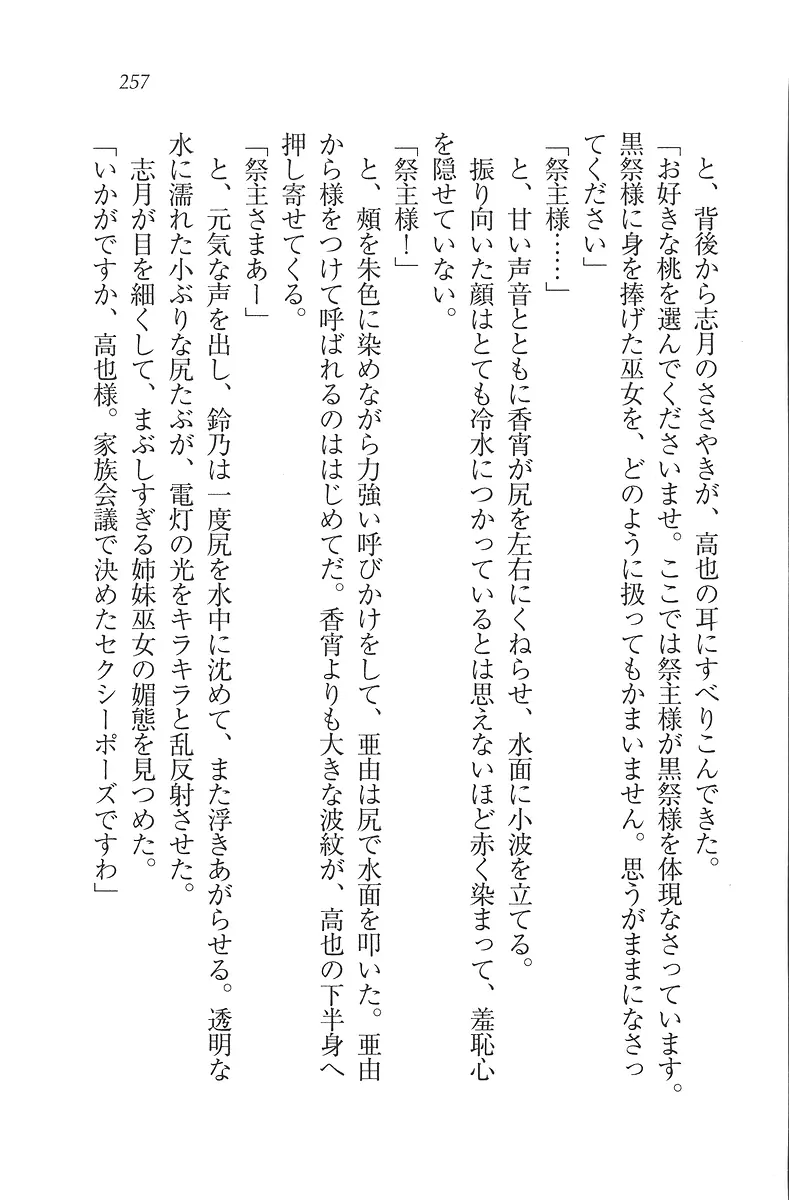 257
と、背後から志月のささやきが、高也の耳にすべりこんできた。
「お好きな桃を選んでくださいませ。ここでは祭主様が黒祭様を体現なさっています。
黒祭様に身を捧げた巫女を、どのように扱ってもかまいません。思うがままになさっ
てください」
「祭主様……」
と、甘い声音とともに香宵が尻を左右にくねらせ、水面に小波を立てる。
振り向いた顔はとても冷水につかっているとは思えないほど赤く染まって、羞恥心
を隠せていない。
「祭主様！」
と、頬を朱色に染めながら力強い呼びかけをして、亜由は尻で水面を叩いた。亜由
から様をつけて呼ばれるのははじめてだ。香宵よりも大きな波紋が、高也の下半身へ
押し寄せてくる。
「祭主さまあー」
と、元気な声を出し、鈴乃は一度尻を水中に沈めて、また浮きあがらせる。透明な
水に濡れた小ぶりな尻たぶが、電灯の光をキラキラと乱反射させた。
志月が目を細くして、まぶしすぎる姉妹巫女の媚態を見つめた。
「いかがですか、高也様。家族会議で決めたセクシーポーズですわ」